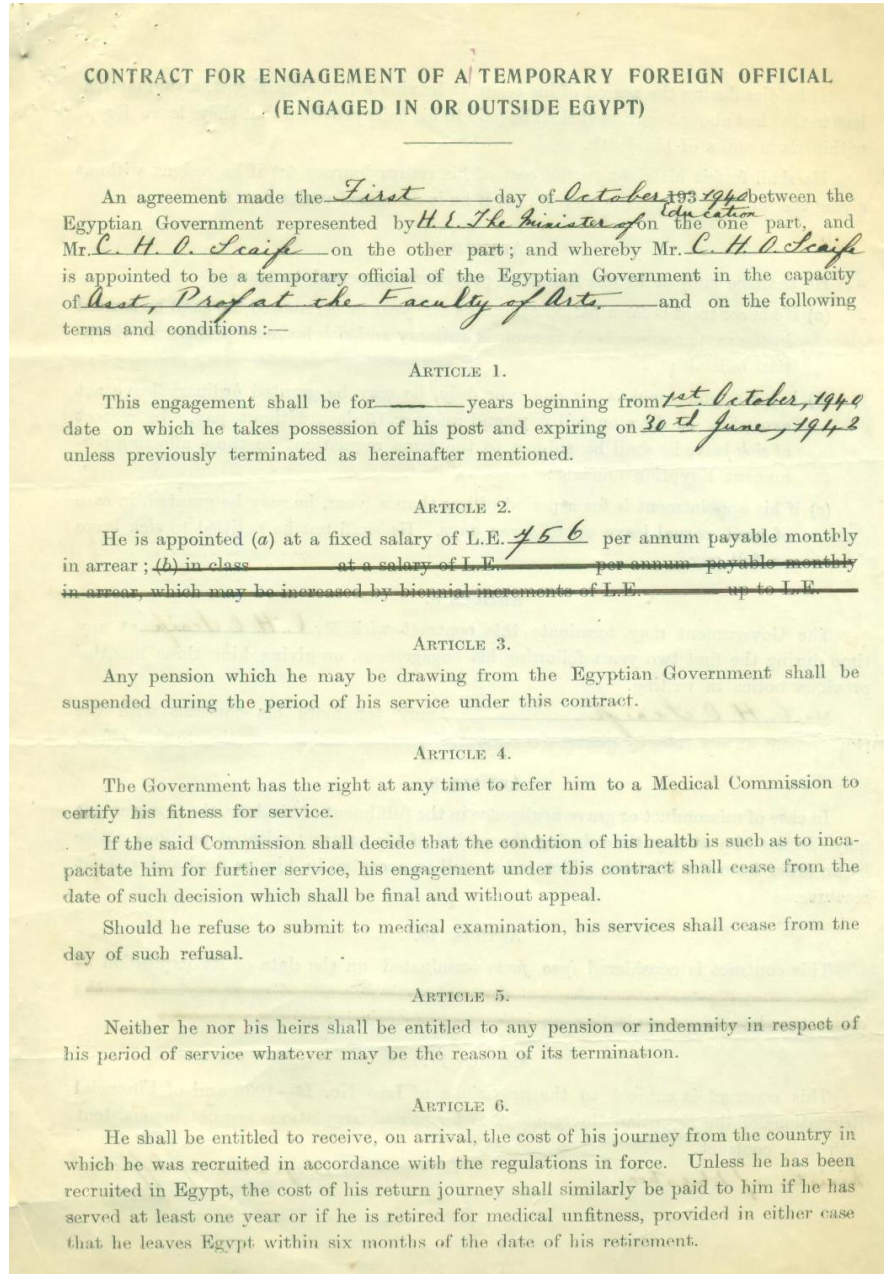 CONTRACT FOR ENGAGEMENT OF A TEMPORARY FOREIGN OFFICIAL
(ENGAGED IN OR OUTSIDE EGYPT)
An agreement made the First day of October 193 1940 between the
Egyptian Government represented by H. E. The Minister of Education on the one part, and
Mr. C. H. O. Scaife on the other part; and whereby Mr. C. H. O. Scaife
is appointed to be a temporary official of the Egyptian Government in the capacity
of Asst, Prof at the Faculty of Arts, and on the following
terms and conditions :—
ARTICLE 1.
This engagement shall be for — years beginning from 1st. October, 1940
date on which he takes possession of his post and expiring on 30th June, 1942
unless previously terminated as hereinafter mentioned.
ARTICLE 2.
He is appointed (a) at a fixed salary of L.E. 756 per annum payable monthly
in arrear ; (b) in class at a salary of L.E. per annum payable monthly
in arrear, which may be increased by biennial increments of L.E. up to L.E.
ARTICLE 3.
Any pension which he may be drawing from the Egyptian Government shall be
suspended during the period of his service under this contract.
ARTICLE 4.
The Government has the right at any time to refer him to a Medical Commission to
certify his fitness for service.
If the said Commission shall decide that the condition of his health is such as to inca-
pacitate him for further service, his engagement under this contract shall cease from the
date of such decision which shall be final and without appeal.
Should he refuse to submit to medical examination, his services shall cease from the
day of such refusal.
ARTICLE 5.
Neither he nor his heirs shall be entitled to any pension or indemnity in respect of
his period of service whatever may be the reason of its termination.
ARTICLE 6.
He shall be entitled to receive, on arrival, the cost of his journey from the country in
which he was recruited in accordance with the regulations in force. Unless he has been
recruited in Egypt, the cost of his return journey shall similarly be paid to him if he has
served at least one year or if he is retired for medical unfitness, provided in either case
that he leaves Egypt within six months of the date of his retirement.